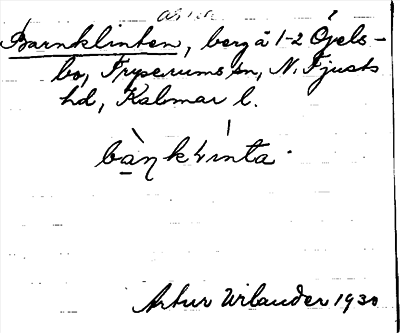 Barnklinten, berg å 1-2 Öjels-
bo, Tryserums sn, N. Tjusts
hd, Kalmar l.
Artur Wilander 1930